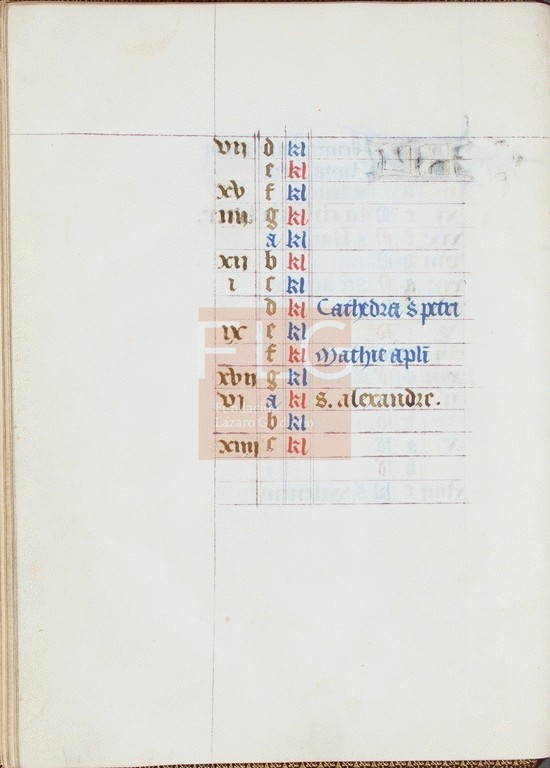 vij d kl
e kl
xv f kl
iiij g kl
a kl
xij b kl
i c kl
d kl Cathedra s petri
ix e kl
f kl Mathie apli
xvij g kl
vj a kl s. alexandre.
b kl
xiiij c kl
FLG
Lázaro Galdiano